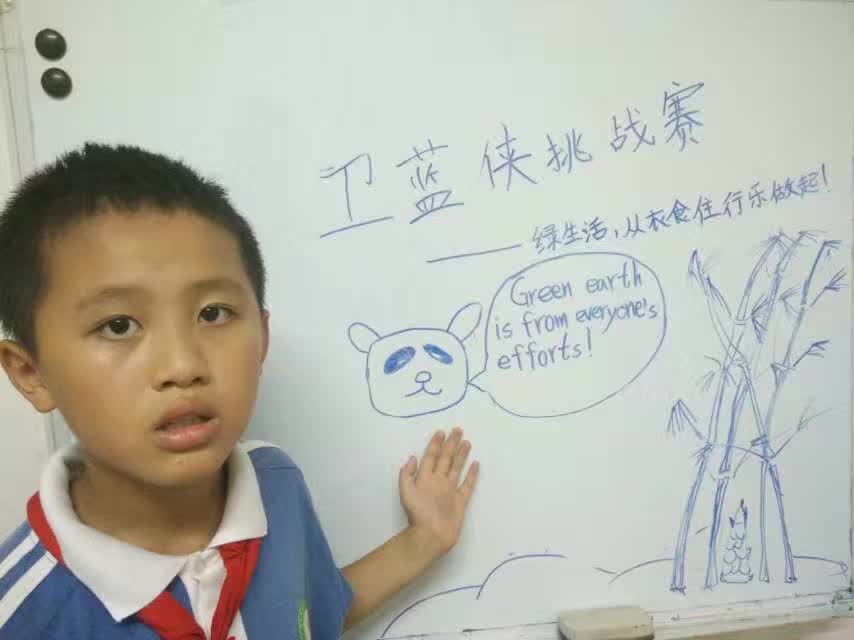 卫蓝侠挑战赛
——绿生活,从衣食住行乐做起!
Green earth
is from everyone's
efforts!